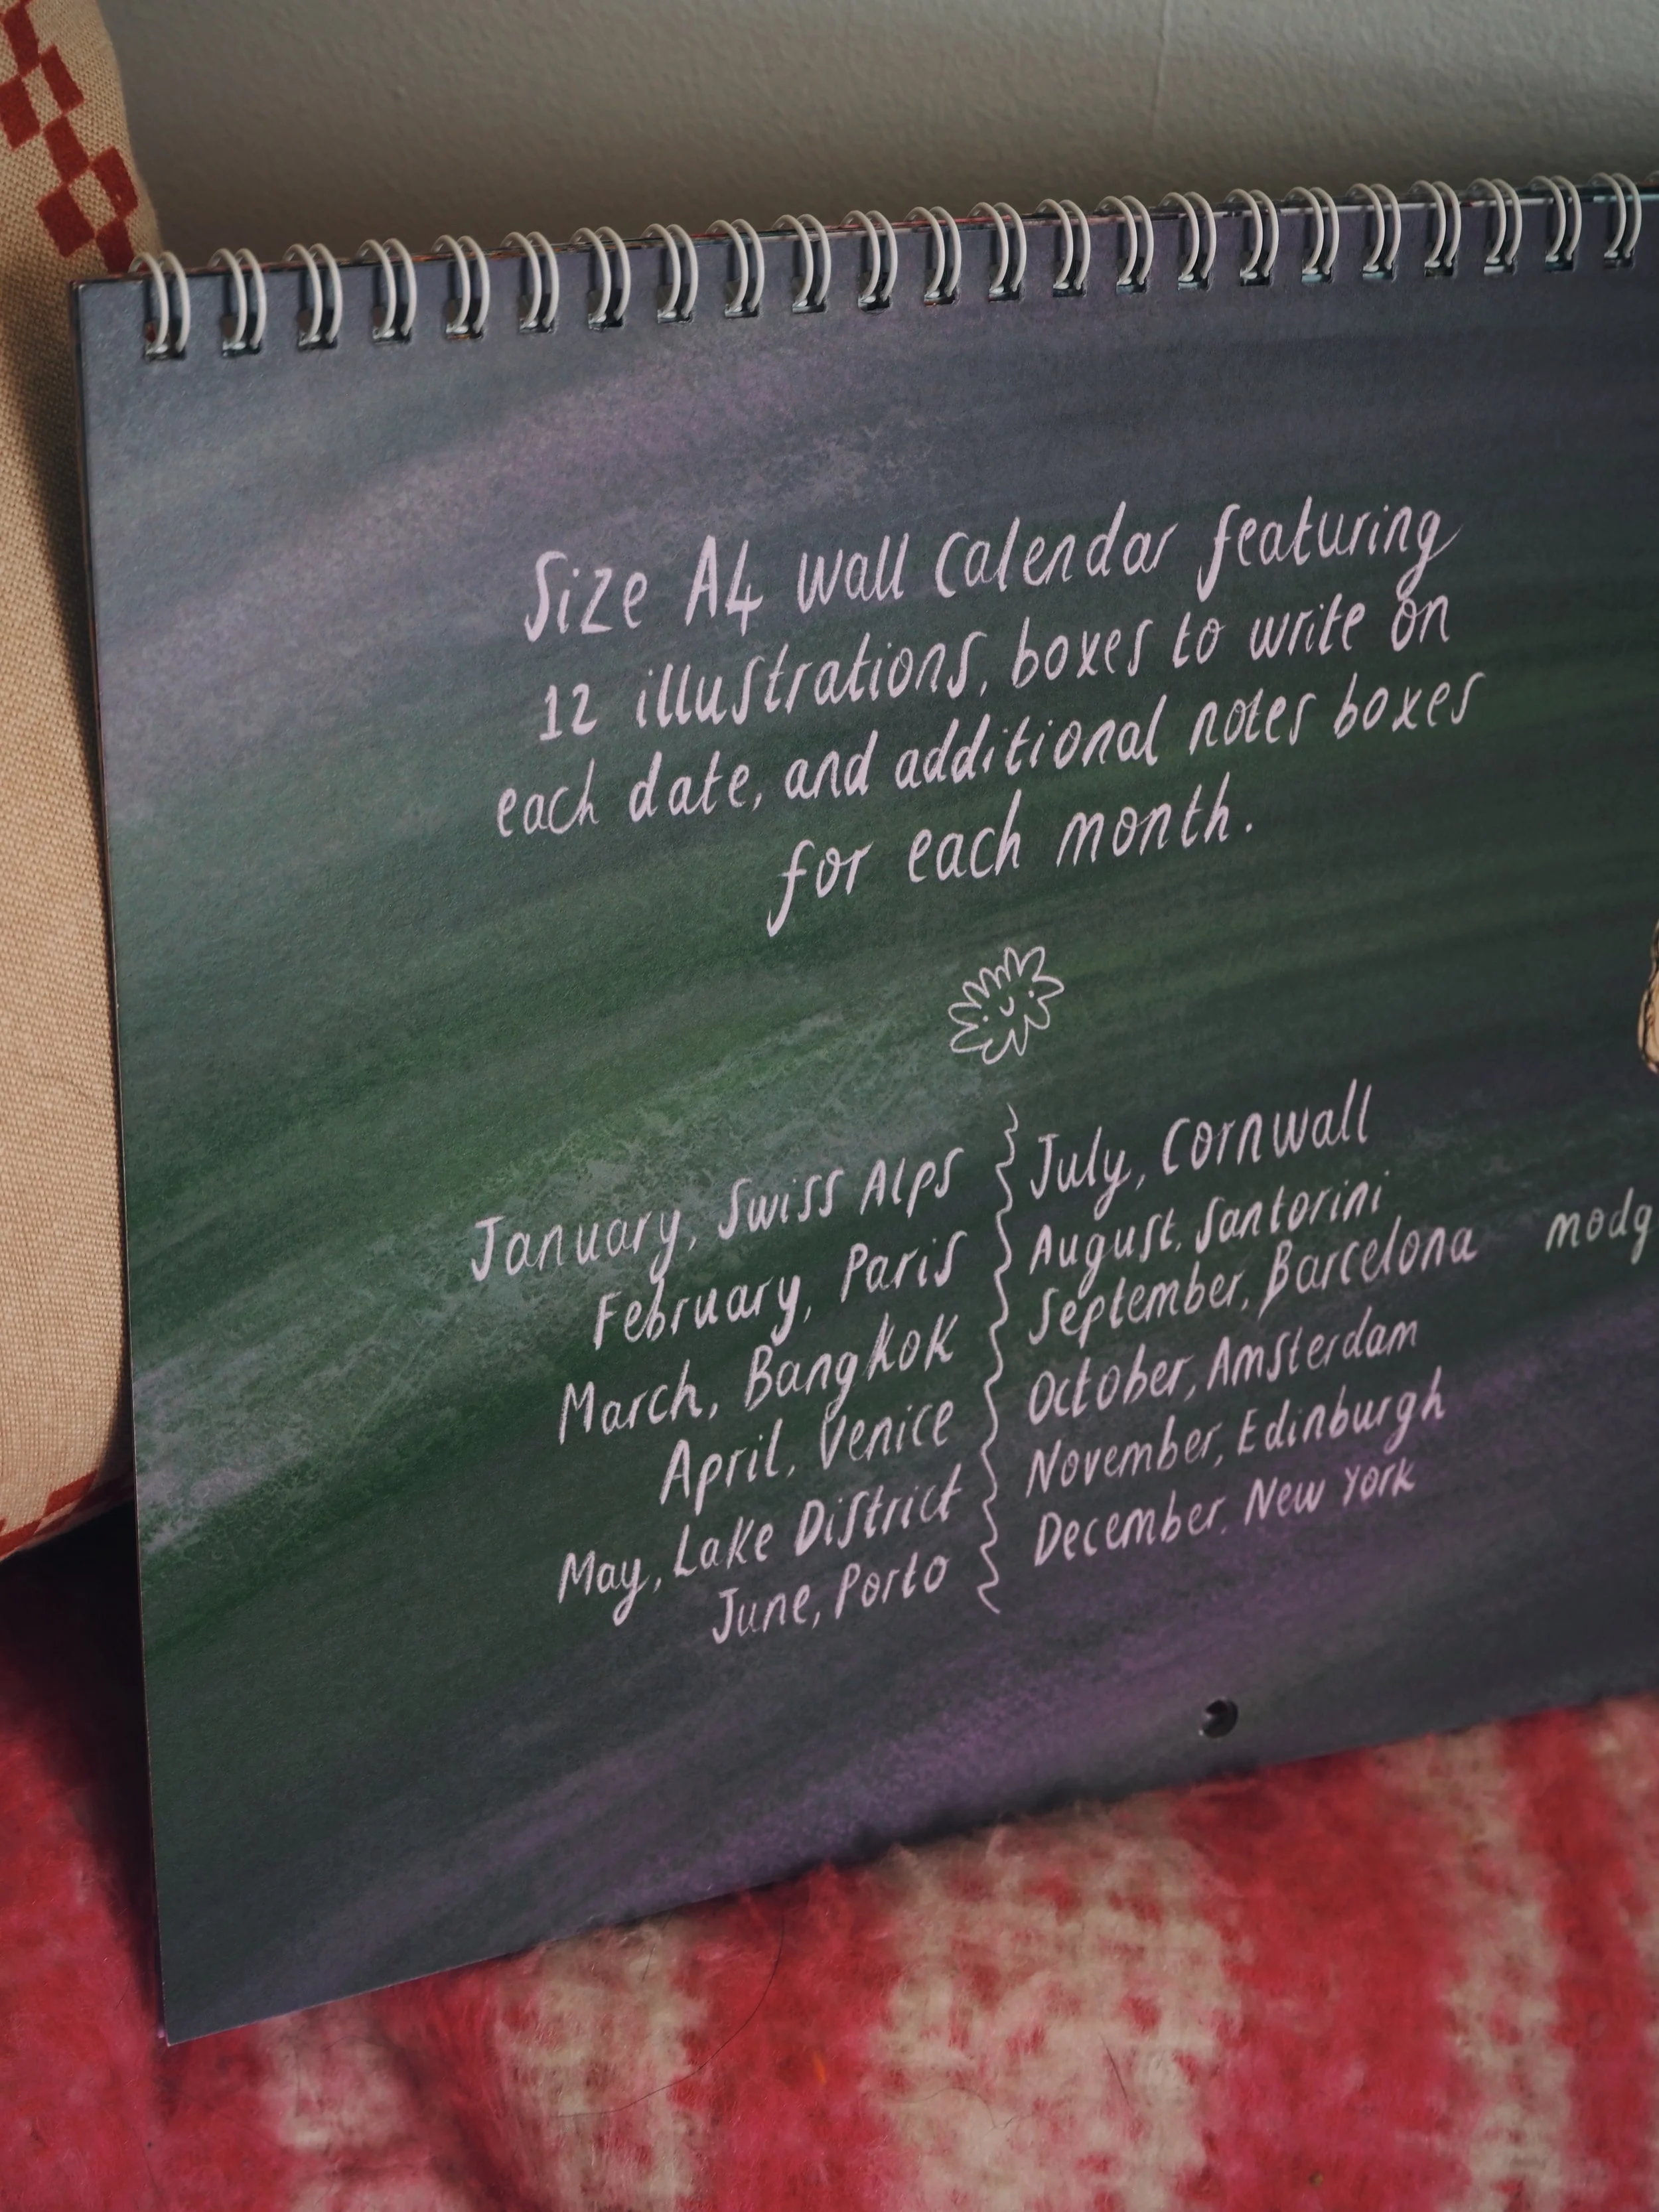 Size A4 wall calendar featuring
12 illustrations, boxes to write on
each date, and additional notes boxes
for each month.
January, Swiss Alps
February, Paris
March, Bangkok
April, Venice
May, Lake District
June, Porto
July, Cornwall
August, Santorini
September, Barcelona
October, Amsterdam
November, Edinburgh
December, New York